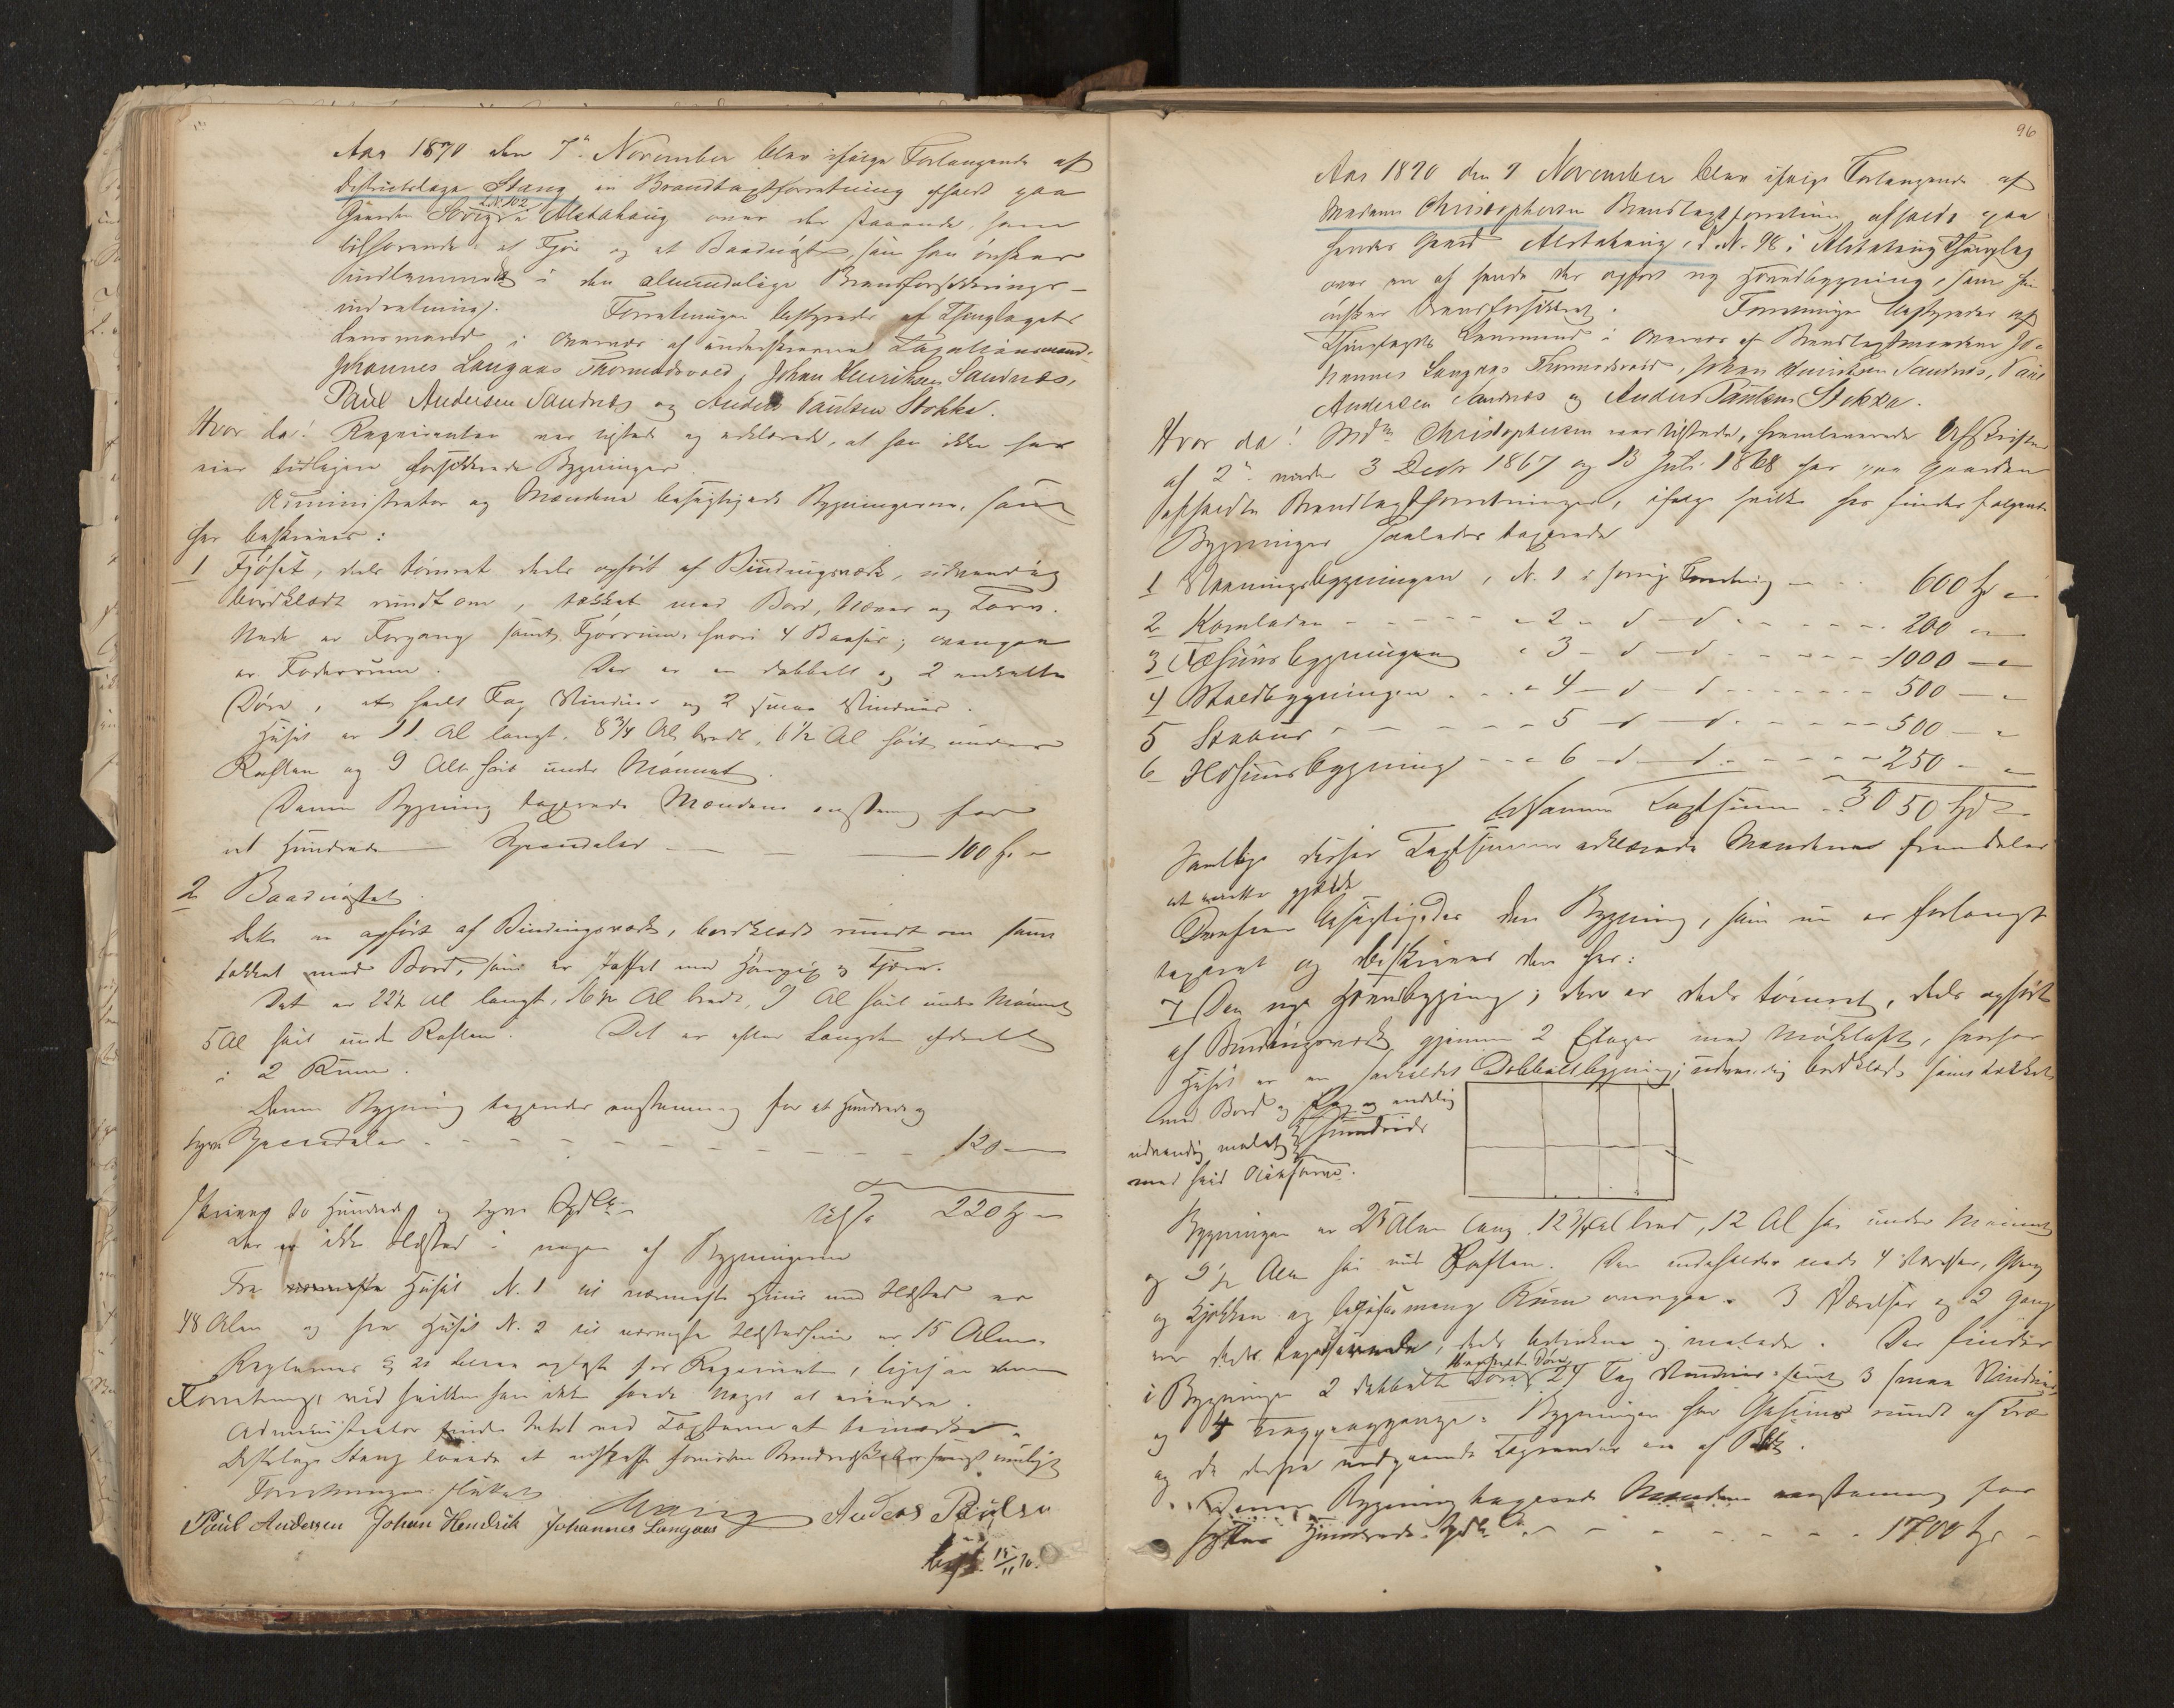 Aar 1870 den 7de November blev ifølge Forlangende af
Districtslæge Stang en Brandtaxtforretning afholdt paa
Gaarden L.N. 102 i Alstahaug over der staaende, ham
tilhørende: et Fjøs og et Baadnøst, som han ønsker
indlemmet i den almindelige Brandforsikrings-
indretning. Forretningen bestyredes af Thinglagets
Lensmand i Overvær af undertegnede Taxationsmænd:
Johannes Langaas Thormodsvold, Johan Henriksen Sandnæs,
Paul Andersen Sandnæs og Anders Paulsen Stokka.
Hvor da! Reqvirenten var tilstede og erklærede, at han ikke her
eier tidligere forsikrede Bygninger.
Administrator og Mændene besigtigede Bygningerne, som
her beskrives:
1 Fjøset, dels tømret dels opført af Bindingsværk, udvendig
bordklædt rundt om, tækket med Bord, Næver og Torv.
Nede er Forgang samt Fjøsrum, hvori 4 Baaser; ovenpaa
er Foderrum. Der er en dobbelt og 2 enkelte
Døre, et heelt Fag Vinduer og 2 smaa Vinduer.
Huset er 11 Al langt, 8 3/4 Al bredt, 6 1/2 Al høit under
Raften og 9 Al høit under Mønnet.
Denne Bygning taxerede Mændene enstemmig for
et Hundrede Speciedaler 100 Sp -
2 Baadnøstet.
Dette er opført af Bindingsværk, bordklædt rundt om samt
tækket med Bord, som er
Det er 22 1/2 Al langt, 16 1/2 Al bredt, 9 Al høit under Mønnet
5 Al høit under Raften. Det er efter Længden afdeelt
i 2 Rum.
Denne Bygning taxeredes enstemmig for et Hundrede og
tyve Speciedaler - - - 120 -
Skriver to Hundrede og tyve Spdlr. 220 Sp -
Der er ikke Ildsted i nogen af Bygningerne
Fra Huset N. 1 til nærmeste Huus med Ildsted er
48 Alen og fra Huset N. 2 til nærmeste Ildstedhuus er 15 Alen.
oplæste for Reqvirenten, ligesaa denne
Forretning, ved hvilken han ikke havde Noget at erindre.
Administrator finder Intet ved Taxterne at bemærke.
Distslæge Stang lovede at anskaffe fornødne Brandredskaber snarest muligt
Forretningen sluttet
Paul Andersen Johan Hendrik Johannes Langaas Anders Paulsen
15/11 70.
96
Aar 1870 den 9 November blev ifølge Forlangende af
Madam Christophersen Brandtaxtforretning afholdt paa
hendes Gaard Alstahaug, L.N. 98 i Alstahaug Thinglag
over en af hende der opført ny Hovedbygning, som hun
ønsker brandforsikret. Forretningen bestyredes af
Thinglagets Lensmand i Overvær af Brandtaxtmændene Jo-
hannes Langaas Thormodsvold, Johan Henriksen Sandnæs, Paul
Andersen Sandnæs og Anders Paulsen Stokka.
Hvor da! Mdm Christophersen var tilstede, fremleverede Afskrifter
af 2de under 3 Decbr 1867 og 13 Juli 1868 her paa Gaarden
afholdte Brandtaxtforretninger, ifølge hvilke her findes følgende
Bygninger saaledes taxerede
1 Vaaningsbygningen, N. 1 i forrige Forretning - - 600 Sp -
2 Kornladen - - - 2 - d - d - - - 200 -
3 Fæhuusbygningen - 3 - d - d - - - 1000 -
4 Staldbygningen - - 4 - d - d - - - 500 -
5 Stabur - - - 5 - d - d - - - 500 -
6 Ildhuusbygning - - 6 - d - d - - - 250 -
tilsammen Taxtsum - 3050 Sp -
Samtlige disse Taxtsummer erklærede Mændene fremdeles
at maatte gjælde
Derefter besigtigedes den Bygning, som nu er forlangt
taxeret og beskrives den her:
7 Den nye Hovedbygning; den er dels tømret, dels opført
af Bindingsværk gjennem 2 Etager med Mørkloft,
Huset er en saakaldet Dobbeltbygning; udvendig bordklædt samt tækket
med Bord og og endelig
udvendig malet
med hvid Oliefarve.
Bygningen er 25 Alen lang, 12 3/4 Al bred, 12 Al høi under Mønnet
og 9 1/2 Alen høi und Raften. Den indeholder nede 4 Værelser, Gang
og Kjøkken og ligesaamange Rum ovenpaa. 3 Værelser og 2 Gange
er dels tapetserede, dels betrukne og malede. Der findes
i Bygningen 2 dobbelte Døre, 24 Fag Vinduer samt 3 smaa Vinduer
og 4 Trappeopgange. Bygningen har Gesims rundt af Træ
og de derfra nedgaaende Tagrender ere af
Denne Bygning taxerede Mændene enstemmig for
sytten Hundrede Spdlr - - - 1700 Sp -